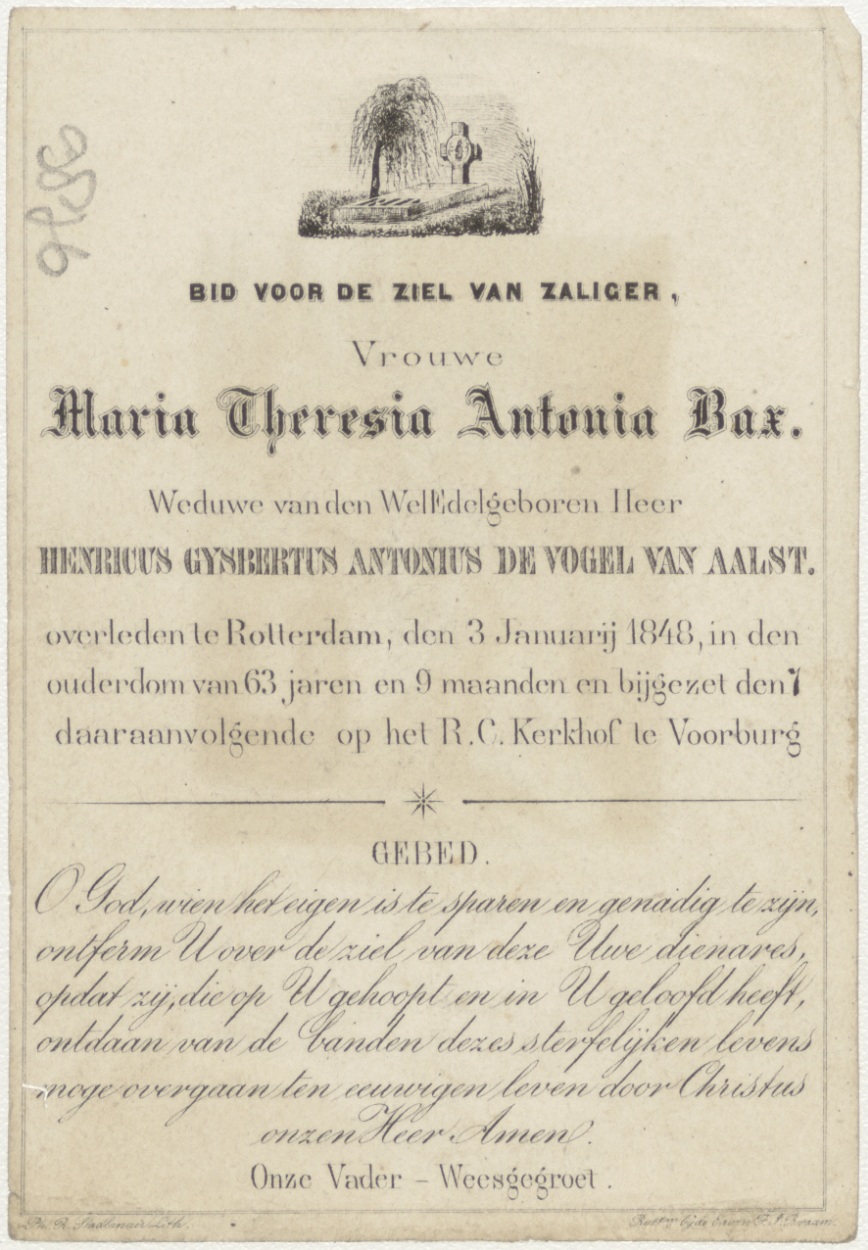 BID VOOR DE ZIEL VAN ZALIGER,
Vrouwe
Maria Theresia Antonia Bax.
Weduwe van den WelEdelgeboren Heer
HENRICUS GYSBERTUS ANTONIUS DE VOGEL VAN AALST.
overleden te Rotterdam, den 3 Januarij 1848, in den
ouderdom van 63 jaren en 9 maanden en bijgezet den 7
daaraanvolgende op het R.C. Kerkhof te Voorburg
GEBED.
O God, wien het eigen is te sparen en genadig te zijn,
ontferm U over de ziel van deze Uwe dienares,
opdat zij, die op U gehoopt en in U geloofd heeft,
ontdaan van de banden dezes sterfelijken levens
moge overgaan ten eeuwigen leven door Christus
onzen Heer Amen.
Onze Vader – Weesgegroet.
Lith.